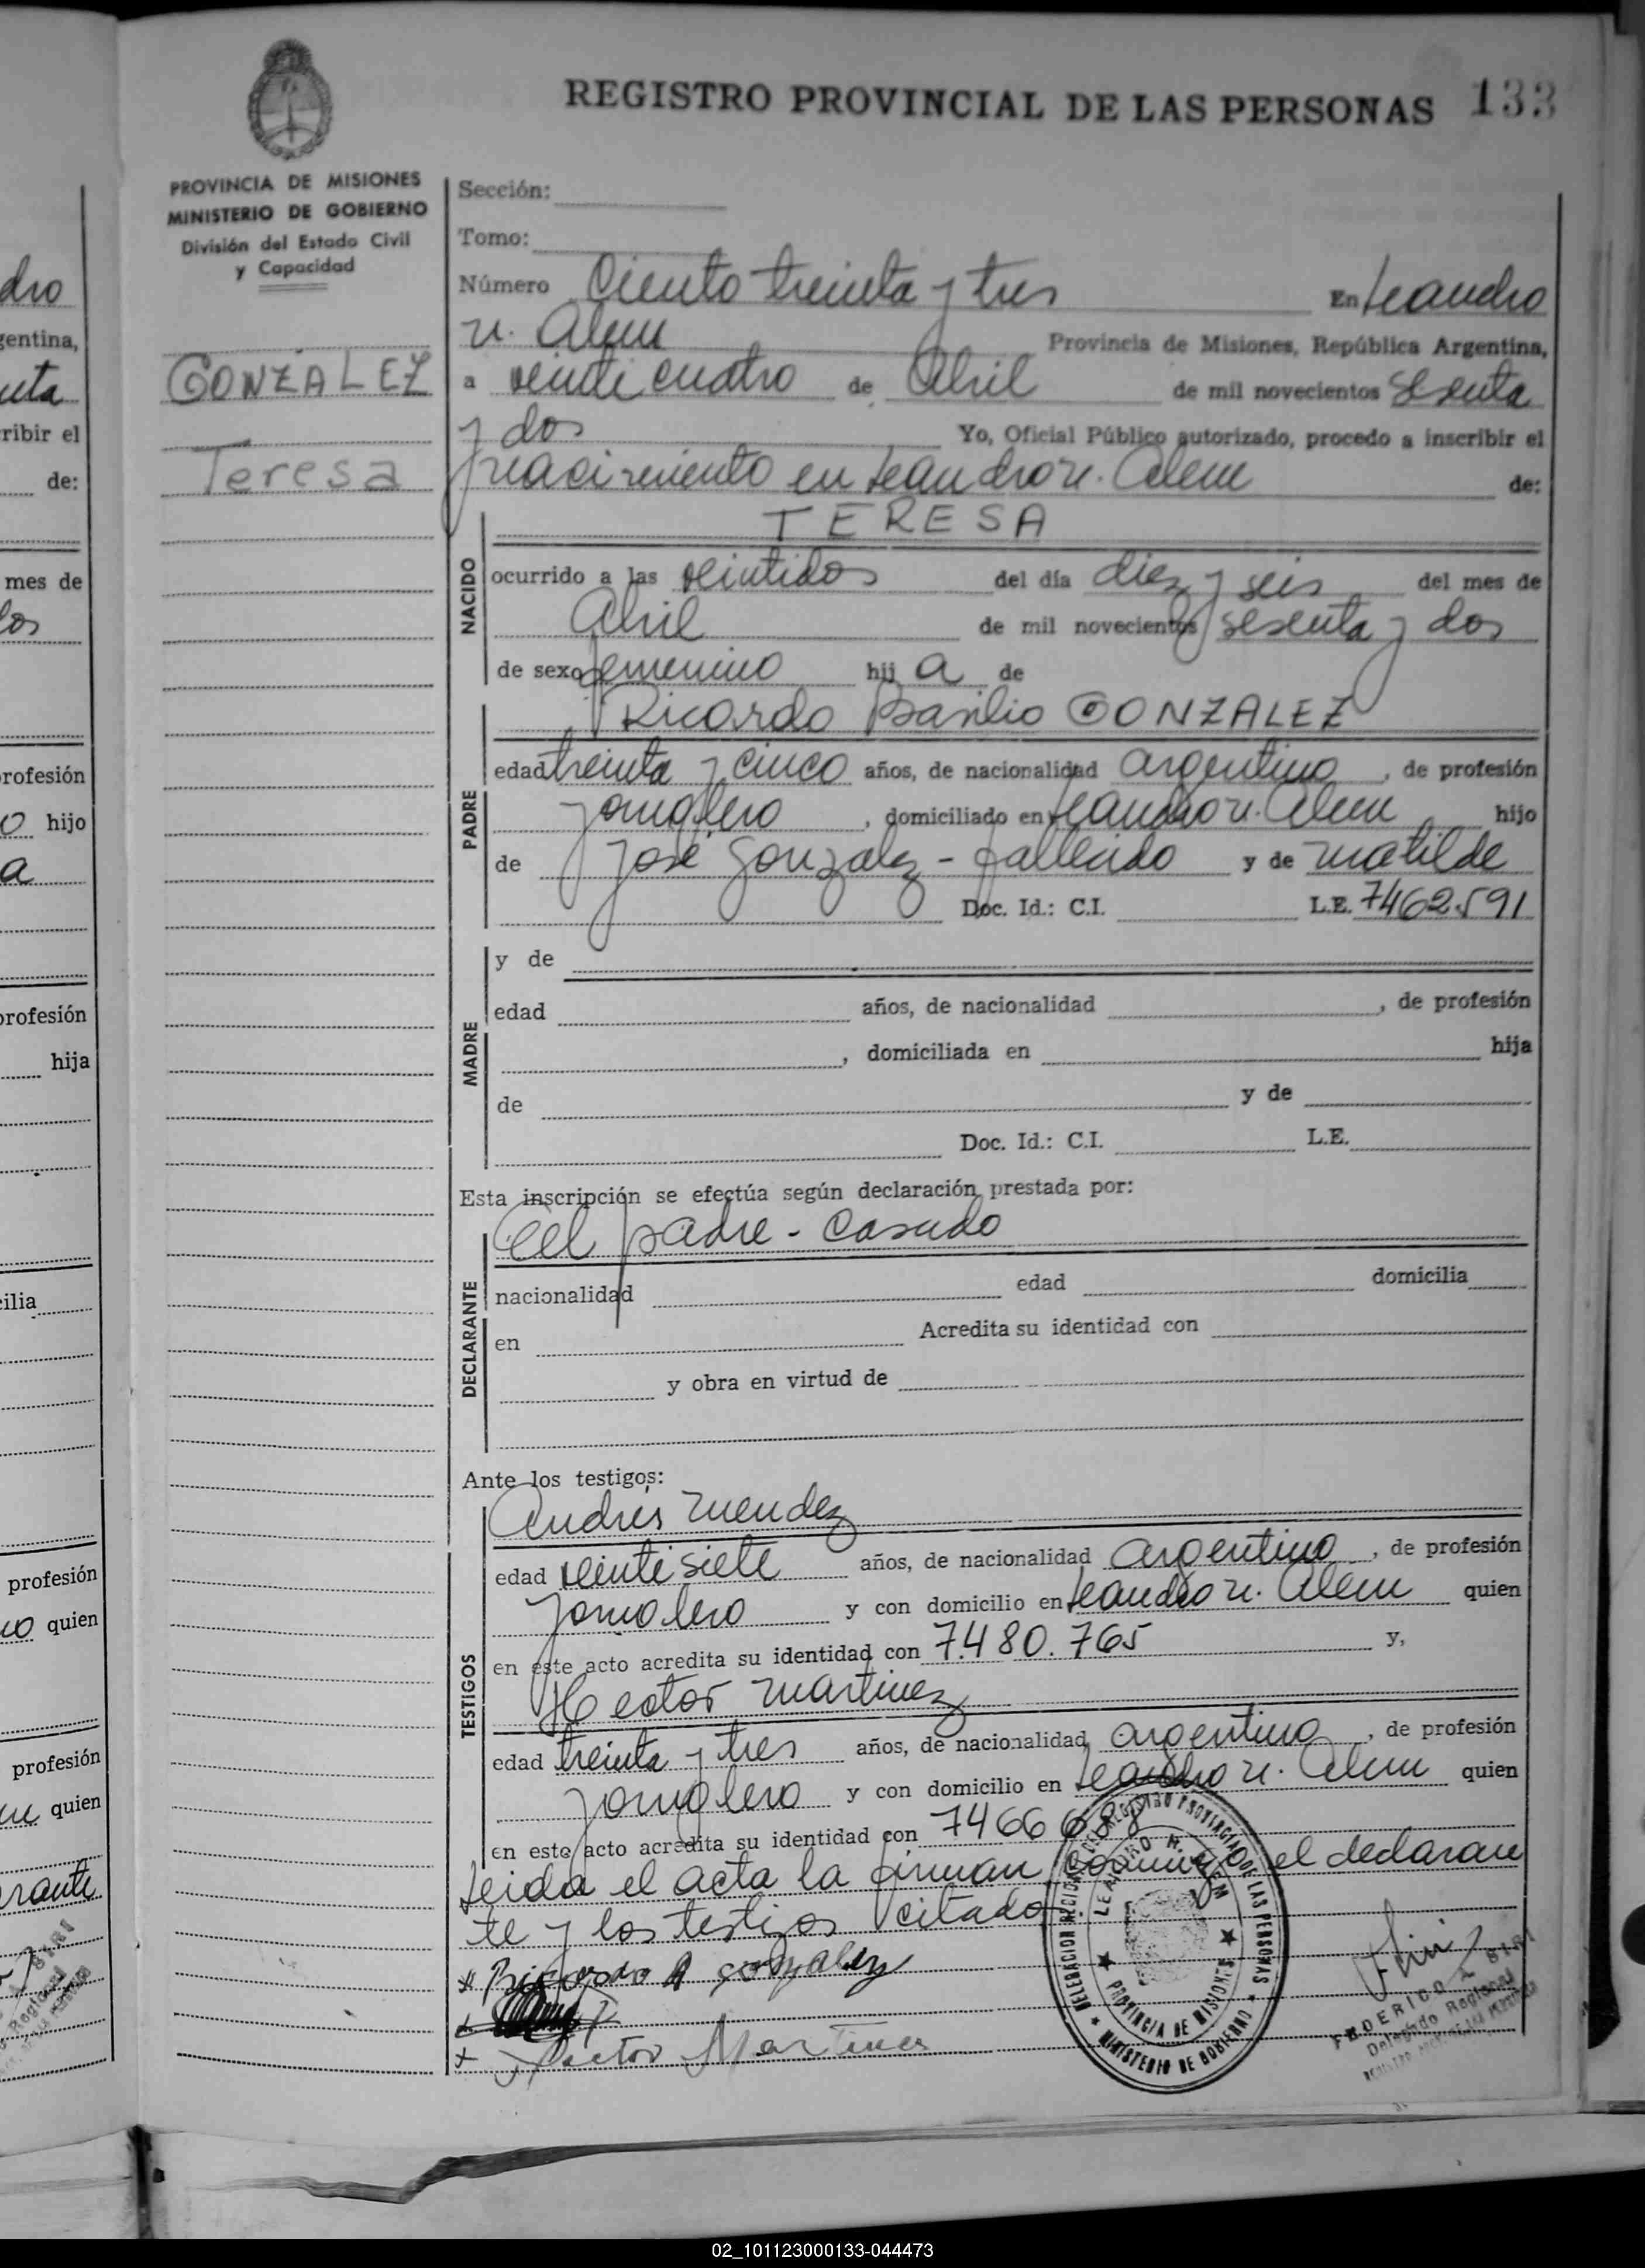 REGISTRO PROVINCIAL DE LAS PERSONAS 133
PROVINCIA DE MISIONES
MINISTERIO DE GOBIERNO
División del Estado Civil
y Capacidad
GONZALEZ
Teresa
Sección:
Tomo:
Número Ciento treinta y tres En Leandro
N. Alem Provincia de Misiones, República Argentina,
a veinticuatro de Abril de mil novecientos sesenta
y dos Yo, Oficial Público autorizado, procedo a inscribir el
nacimiento en Leandro N. Alem de:
TERESA
NACIDO
ocurrido a las veintidos del día diez y seis del mes de
Abril de mil novecientos sesenta y dos
de sexo femenino hij a de
Ricardo Basilio GONZALEZ
PADRE
edad treinta y cinco años, de nacionalidad argentino, de profesión
jornalero, domiciliado en Leandro N. Alem hijo
de José Gonzalez - fallecido y de Matilde
Doc. Id.: C.I. L.E. 7462.591
MADRE
y de
edad años, de nacionalidad , de profesión
, domiciliada en hija
de y de
Doc. Id.: C.I. L.E.
Esta inscripción se efectúa según declaración prestada por:
El padre - casado
DECLARANTE
nacionalidad edad domicilia
en Acredita su identidad con
y obra en virtud de
Ante los testigos:
Andrés Mendez
TESTIGOS
edad veintisiete años, de nacionalidad argentino, de profesión
jornalero y con domicilio en Leandro N. Alem quien
en este acto acredita su identidad con 7.480.765 y,
Hector Martinez
edad treinta y tres años, de nacionalidad argentino, de profesión
jornalero y con domicilio en Leandro N. Alem quien
en este acto acredita su identidad con 7466688
Leida el acta la firman conmigo el declaran
te y los testigos citados
Ricardo gonzalez
Hector Martines
LEANDRO N. ALEM
PROVINCIA DE MISIONES
MINISTERIO DE GOBIERNO
FEDERICO
Delegado Regional
dro
gentina,
ribir el
de:
mes de
rofesión
o hijo
a
profesión
hija
cilia
profesión
quien
profesión
quien
rante
02_101123000133-044473